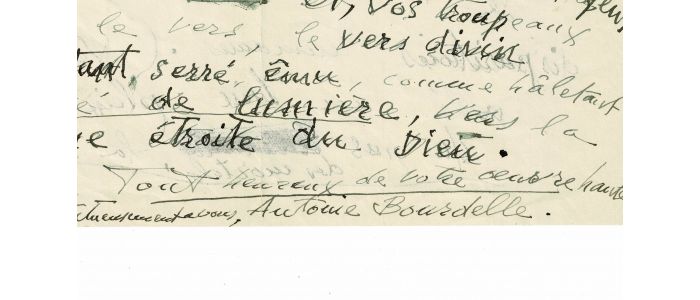 et, vos troupeaux
le vers le vers divin
tant serré ému, comme hâletant
é de lumière, vers la
e étroite du Dieu.
Tout heureux de votre oeuvre haute
Antoine Bourdelle.